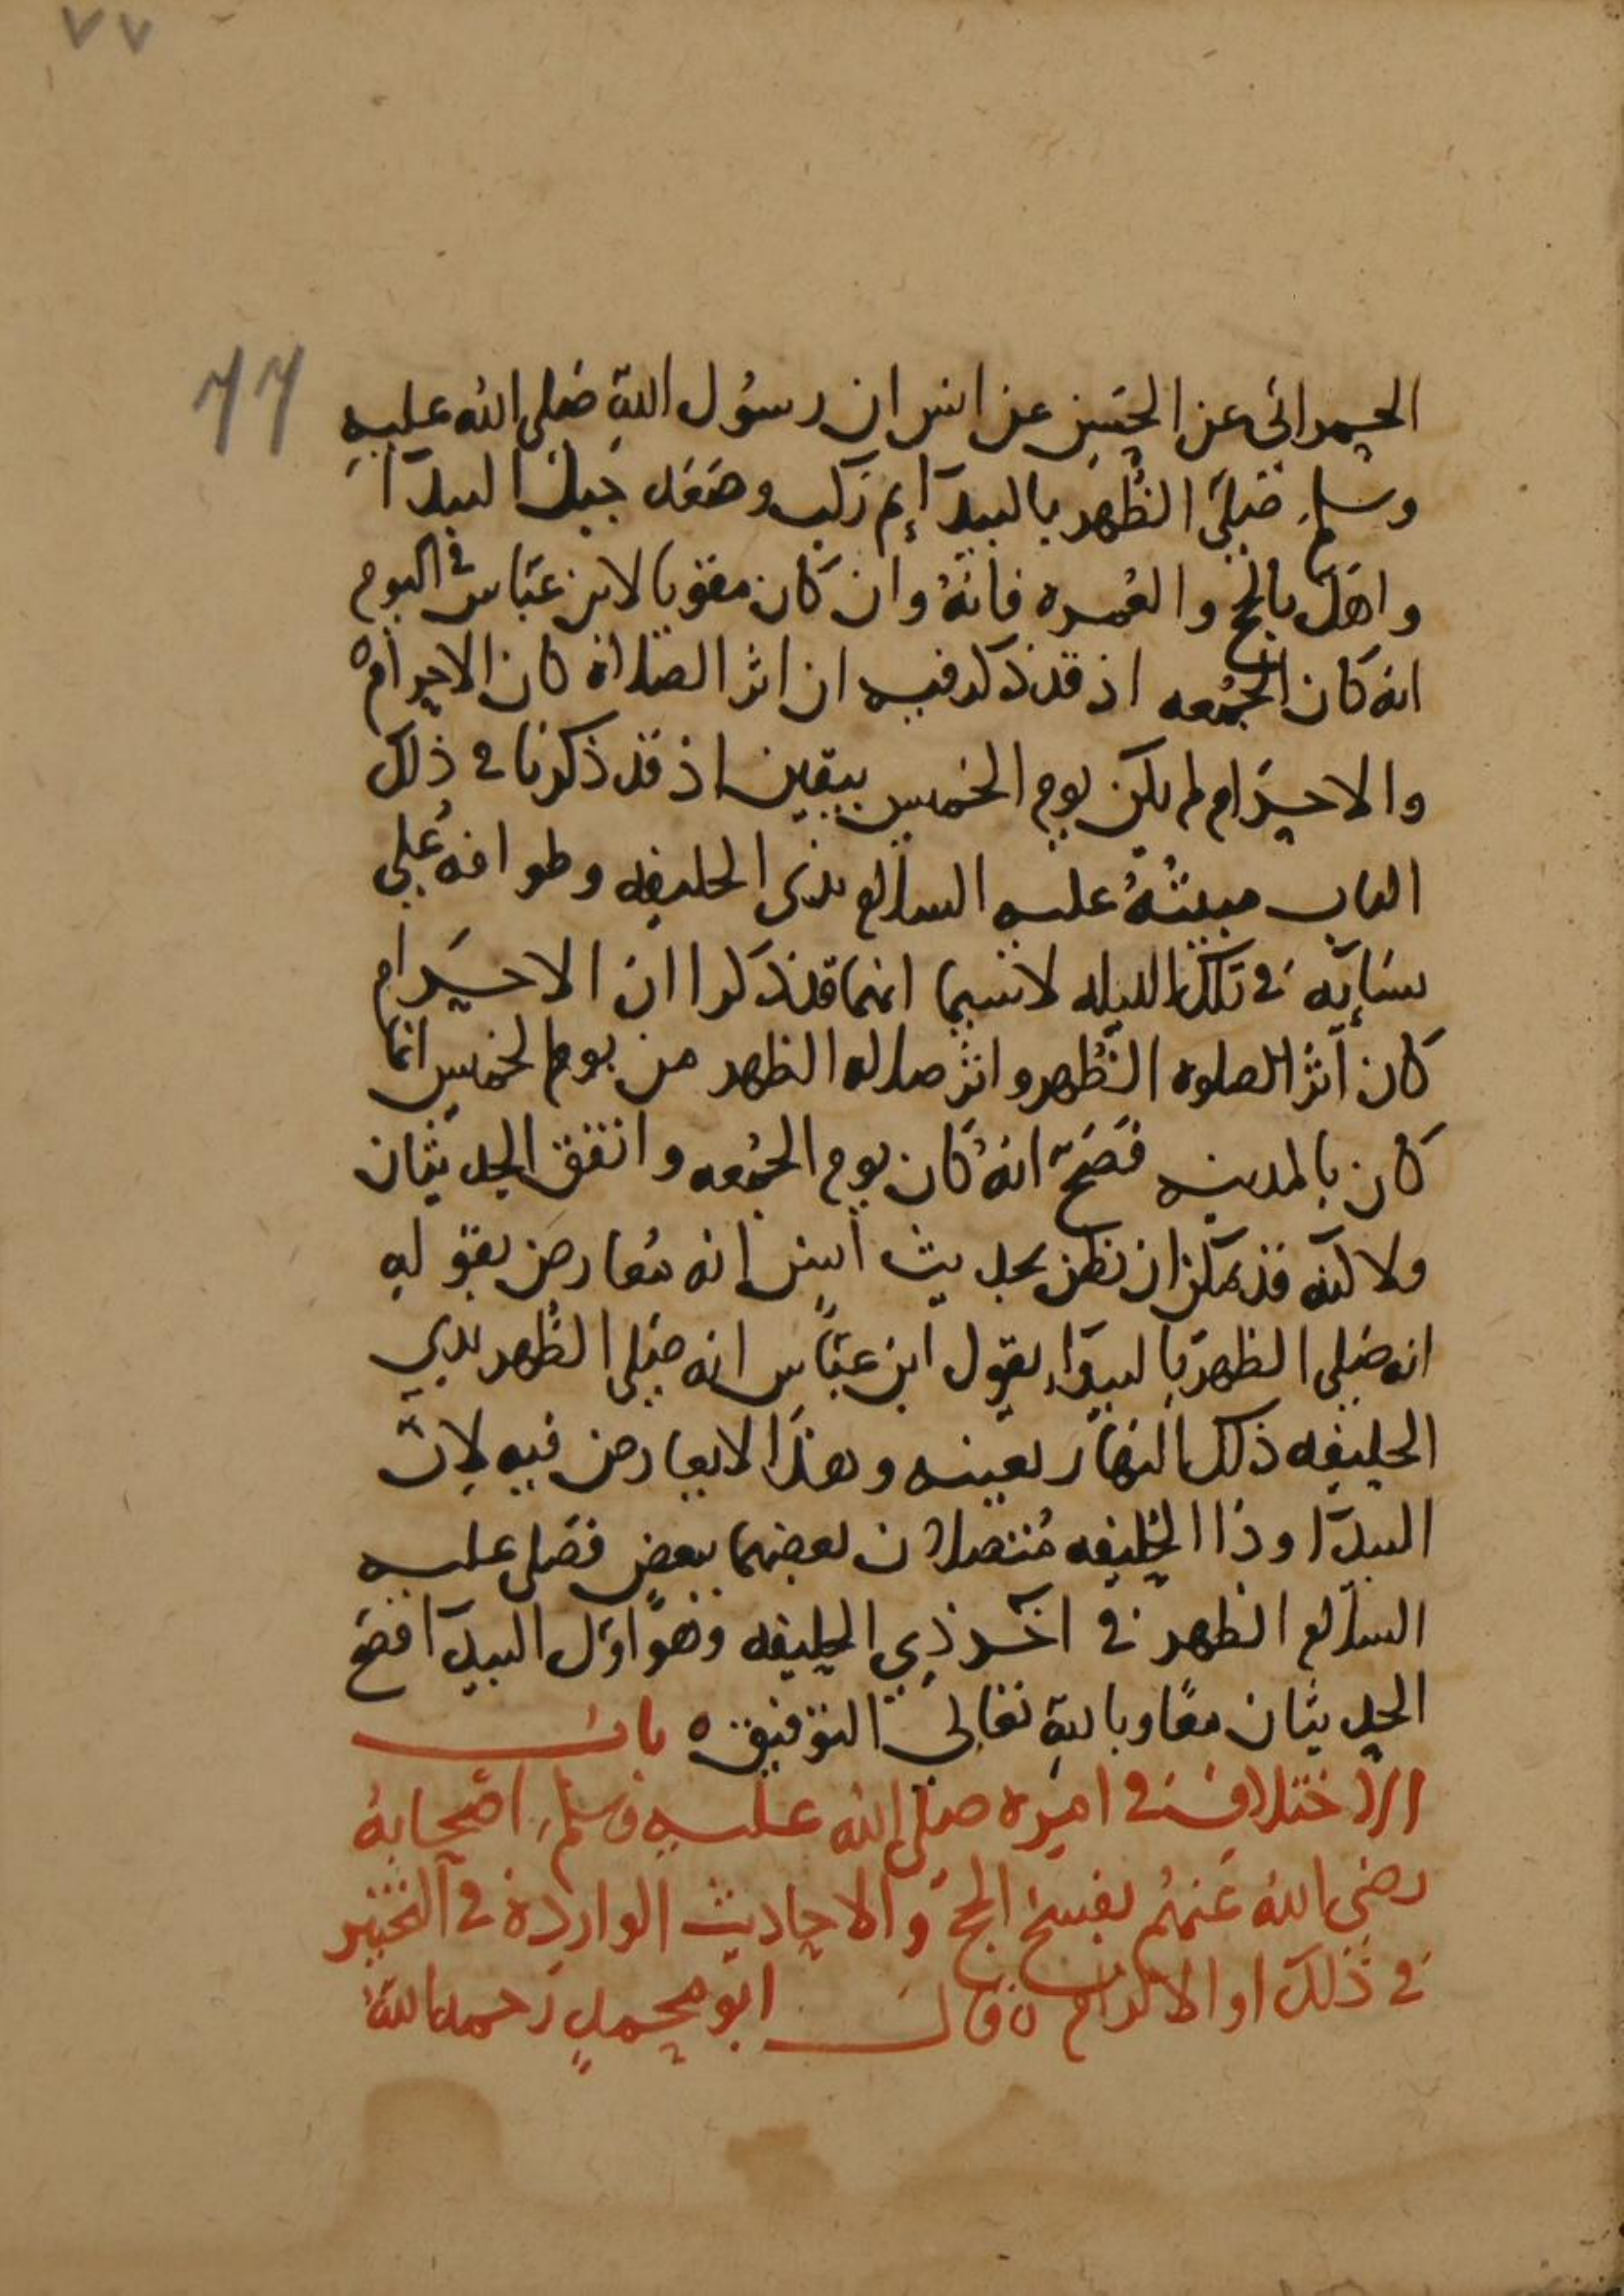 ٧٧
٧٧
الحمراني عن الحسن عن انس ان رسول الله صلى الله عليه
وسلم صلى الظهر بالبيدآ ثم ركب وصعد جبل البيدآ
واهل بالحج والعمره فانه وان كان مقويا لابن عباس في اليوم
انه كان الجمعه اذ قد ذكر فيه ان اثر الصلاة كان الاحرام
والاحرام لم يكن يوم الخميس بيقين اذ قد ذكرنا في ذلك
الباب مبيته عليه السلام بذي الحليفه وطوافه على
نسايه في تلك الليله لاسيما انهما قد ذكرا ان الاحرام
كان اثر الصلوه الظهر واثر صلاه الظهر من يوم الخميس انما
كان بالمدينه فصح انه كان يوم الجمعه واتفق الحديثان
ولاكنه قد يمكن ان نظن بحديث انس انه معارض بقوله
انه صلى الظهر بالبيدا، بقول ابن عباس انه صلى الظهر بذي
الحليفه ذلك النهار بعينه وهذا لا يعارض فيه لان
البيدآ وذا الحليفه متصلان بعضهما ببعض فصلى عليه
السلام الظهر في آخر ذي الحليفه وهو اول البيدآ فصح
الحديثان معًا وبالله تعالى التوفيق ه باب
الاختلاف في امره صلى الله عليه وسلم اصحابه
رضي الله عنهم بفسخ الحج والاحاديث الواردة في التخيير
في ذلك او الالزام ه قال ابو محمد رحمه الله